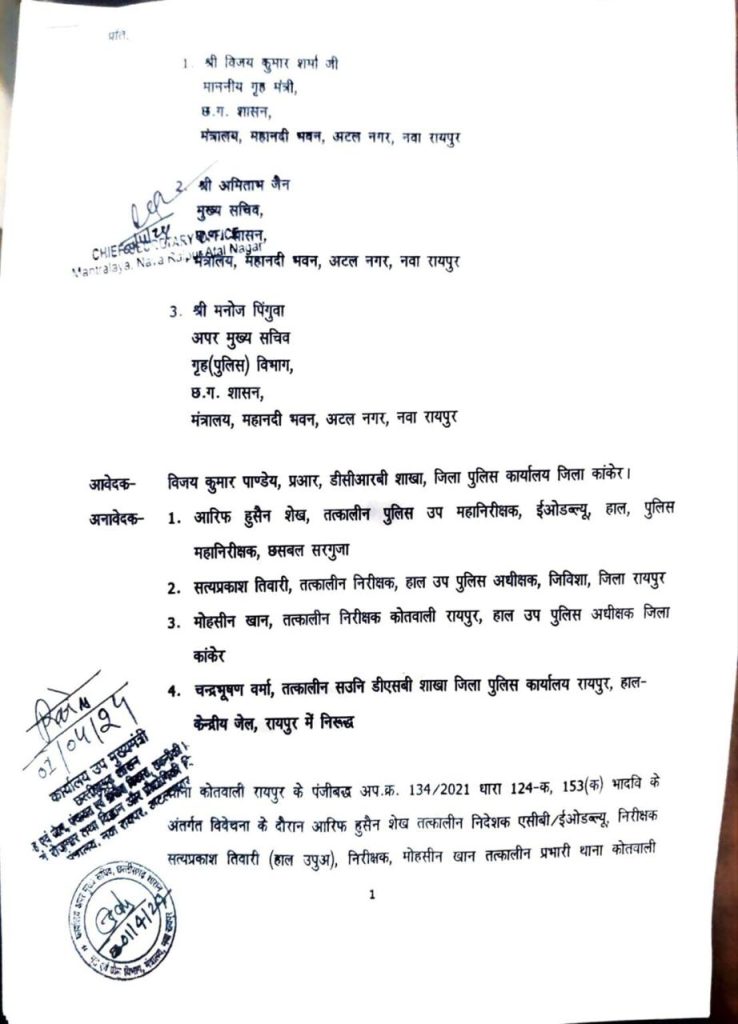 प्रति,
1. श्री विजय कुमार शर्मा जी
माननीय गृह मंत्री,
छ.ग. शासन,
मंत्रालय, महानदी भवन, अटल नगर, नवा रायपुर
2. श्री अमिताभ जैन
मुख्य सचिव,
छ.ग. शासन,
CHIEF SECRETARY OFFICE
Mantralaya, Nava Raipur Atal Nagar
मंत्रालय, महानदी भवन, अटल नगर, नवा रायपुर
3. श्री मनोज पिंगुवा
अपर मुख्य सचिव
गृह(पुलिस) विभाग,
छ.ग. शासन,
मंत्रालय, महानदी भवन, अटल नगर, नवा रायपुर
आवेदक- विजय कुमार पाण्डेय, प्रआर, डीसीआरबी शाखा, जिला पुलिस कार्यालय जिला कांकेर।
अनावेदक- 1. आरिफ हुसैन शेख, तत्कालीन पुलिस उप महानिरीक्षक, ईओडब्ल्यू, हाल, पुलिस
महानिरीक्षक, छसबल सरगुजा
2. सत्यप्रकाश तिवारी, तत्कालीन निरीक्षक, हाल उप पुलिस अधीक्षक, जिविशा, जिला रायपुर
3. मोहसीन खान, तत्कालीन निरीक्षक कोतवाली रायपुर, हाल उप पुलिस अधीक्षक जिला
कांकेर
4. चन्द्रभूषण वर्मा, तत्कालीन सउनि डीएसबी शाखा जिला पुलिस कार्यालय रायपुर, हाल-
केन्द्रीय जेल, रायपुर में निरूद्ध
01/04/24
कार्यालय उप मुख्यमंत्री
छत्तीसगढ़ शासन
थाना कोतवाली रायपुर के पंजीबद्ध अप.क्र. 134/2021 धारा 124-क, 153(क) भादवि के
अंतर्गत विवेचना के दौरान आरिफ हुसैन शेख तत्कालीन निदेशक एसीबी/ईओडब्ल्यू, निरीक्षक
सत्यप्रकाश तिवारी (हाल उपुअ), निरीक्षक, मोहसीन खान तत्कालीन प्रभारी थाना कोतवाली
1
01/4/24